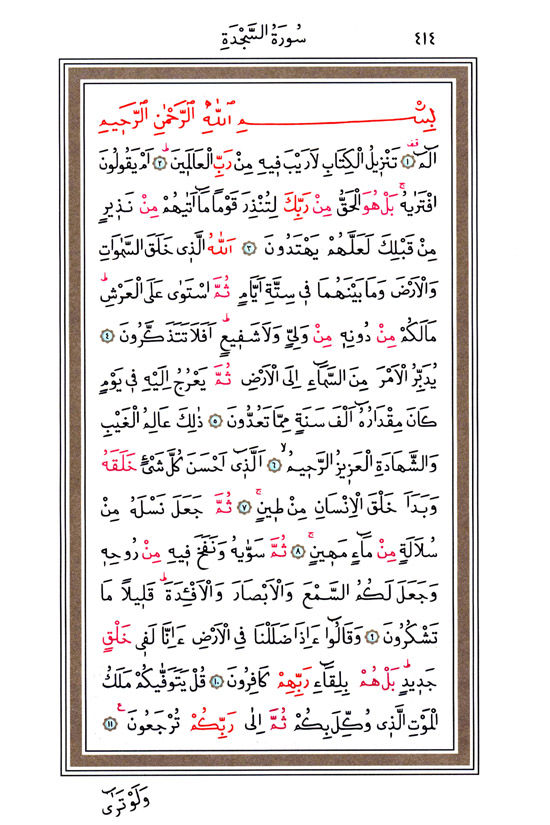 ٤١٤
سُورَةُ السَّجْدَةِ
بِسْــــــــمِ اللّٰهِ الرَّحْمٰنِ الرَّحٖيمِ
الٓمٓ ﴿١﴾ تَنْزٖيلُ الْكِتَابِ لَارَيْبَ فٖيهِ مِنْ رَبِّ الْعَالَمٖينَۜ ﴿٢﴾ اَمْ يَقُولُونَ
افْتَرٰيهُۚ بَلْ هُوَ الْحَقُّ مِنْ رَبِّكَ لِتُنْذِرَ قَوْمًا مَٓا اَتٰيهُمْ مِنْ نَذٖيرٍ
مِنْ قَبْلِكَ لَعَلَّهُمْ يَهْتَدُونَ ﴿٣﴾ اَللّٰهُ الَّذٖى خَلَقَ السَّمٰوَاتِ
وَالْاَرْضَ وَمَا بَيْنَهُمَا فٖى سِتَّةِ اَيَّامٍ ثُمَّ اسْتَوٰى عَلَى الْعَرْشِۜ
مَالَكُمْ مِنْ دُونِهٖ مِنْ وَلِىٍّ وَلَا شَفٖيعٍۜ اَفَلَا تَتَذَكَّرُونَ ﴿٤﴾
يُدَبِّرُ الْاَمْرَ مِنَ السَّمَٓاءِ اِلَى الْاَرْضِ ثُمَّ يَعْرُجُ اِلَيْهِ فٖى يَوْمٍ
كَانَ مِقْدَارُهُٓ اَلْفَ سَنَةٍ مِمَّا تَعُدُّونَ ﴿٥﴾ ذٰلِكَ عَالِمُ الْغَيْبِ
وَالشَّهَادَةِ الْعَزٖيزُ الرَّحٖيمُۙ ﴿٦﴾ اَلَّذٖٓى اَحْسَنَ كُلَّ شَیْءٍ خَلَقَهُ
وَبَدَاَ خَلْقَ الْاِنْسَانِ مِنْ طٖينٍۚ ﴿٧﴾ ثُمَّ جَعَلَ نَسْلَهُ مِنْ
سُلَالَةٍ مِنْ مَٓاءٍ مَهٖينٍۚ ﴿٨﴾ ثُمَّ سَوّٰيهُ وَنَفَخَ فٖيهِ مِنْ رُوحِهٖ
وَجَعَلَ لَكُمُ السَّمْعَ وَالْاَبْصَارَ وَالْاَفْـِٔدَةَۜ قَلٖيلًا مَا
تَشْكُرُونَ ﴿٩﴾ وَقَالُٓوا ءَاِذَا ضَلَلْنَا فِى الْاَرْضِ ءَاِنَّا لَفٖى خَلْقٍ
جَدٖيدٍۜ بَلْ هُمْ بِلِقَٓائِ رَبِّهِمْ كَافِرُونَ ﴿١٠﴾ قُلْ يَتَوَفّٰيكُمْ مَلَكُ
الْمَوْتِ الَّذٖى وُكِّلَ بِكُمْ ثُمَّ اِلٰى رَبِّكُمْ تُرْجَعُونَ ﴿١١﴾ ع
وَلَوْ تَرٰٓى